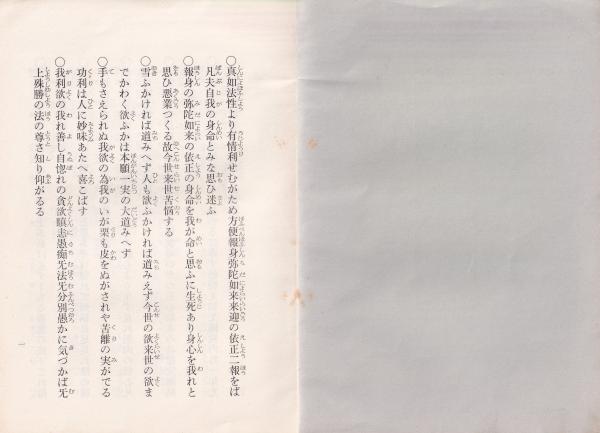 ○真如法性より有情利せむがため方便報身弥陀如来来迎の依正二報をば
凡夫自我の身命とみな思ひ迷ふ
○報身の弥陀如来の依正の身命を我が命と思ふに生死あり身心を我れと
思ひ悪業つくる故今世来世苦悩する
○雪ふかければ道みへず人も欲ふかければ道みえず今世の欲来世の欲ま
でかわく欲ふかは本願一実の大道みへず
○手もさえられぬ我欲の為我のいが栗も皮をぬがされや苦離の実がでる
功利は人に妙味あたへ喜こばす
○我利欲の我れ善し自惚れの貪欲瞋恚愚痴旡法旡分別愚かに気づかば旡
上殊勝の法の尊さ知り仰がるる
一